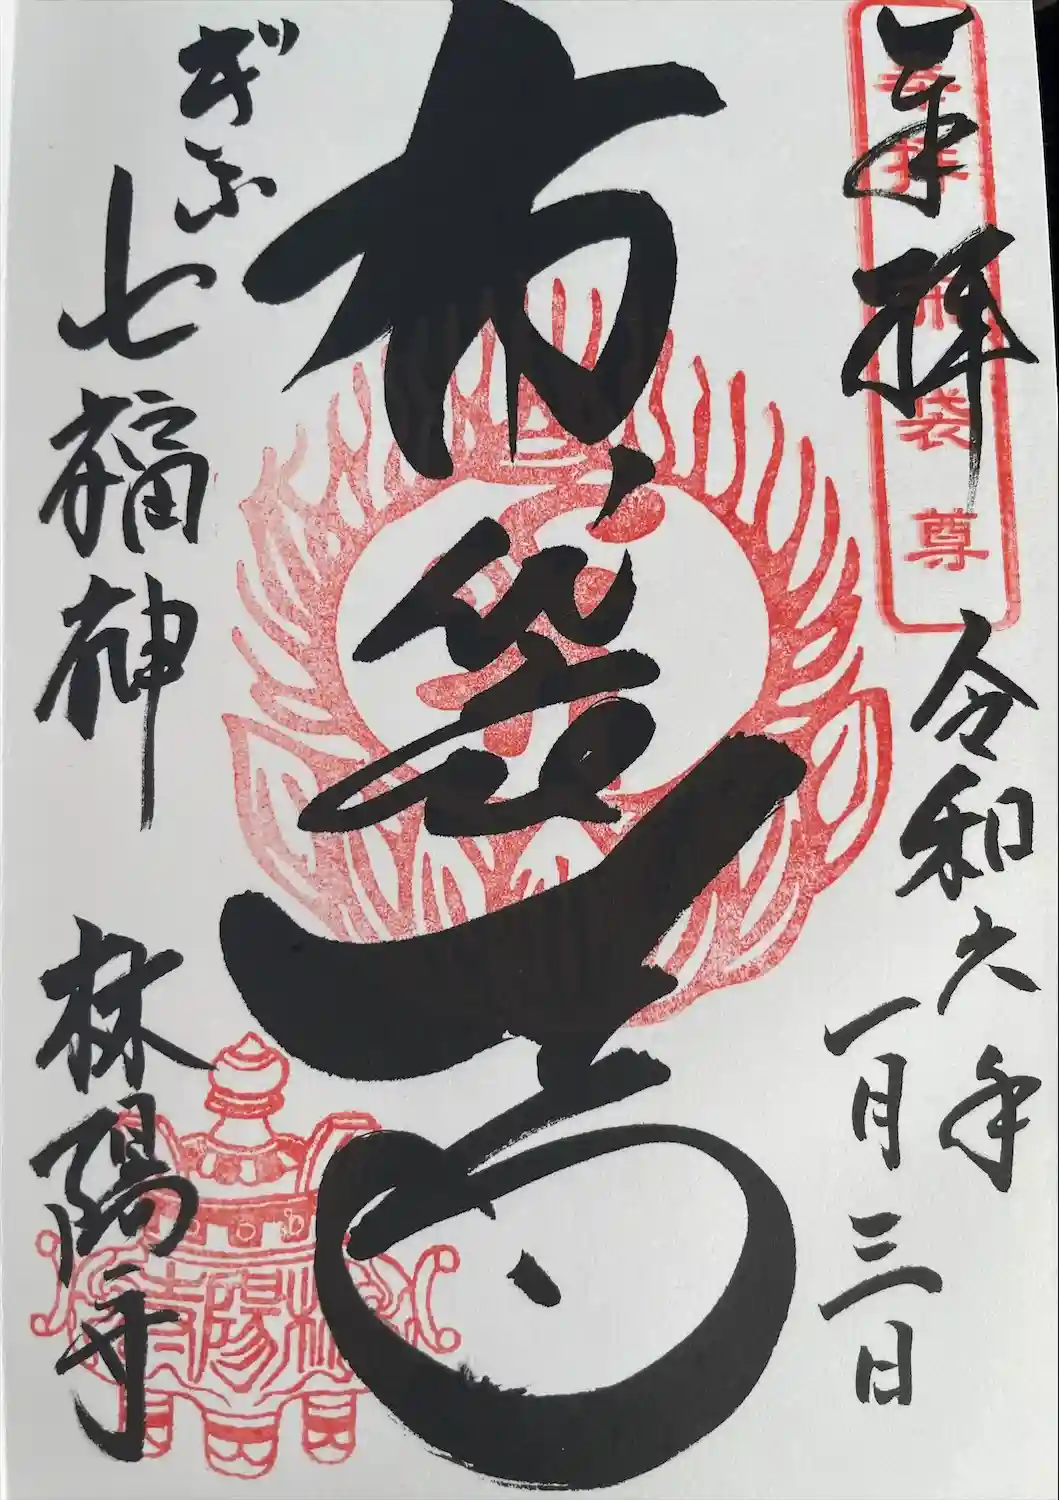 奉拝
奉拝 布袋尊
令和六年
一月三日
布袋尊
ぎふ
七福神
林陽寺
林陽寺